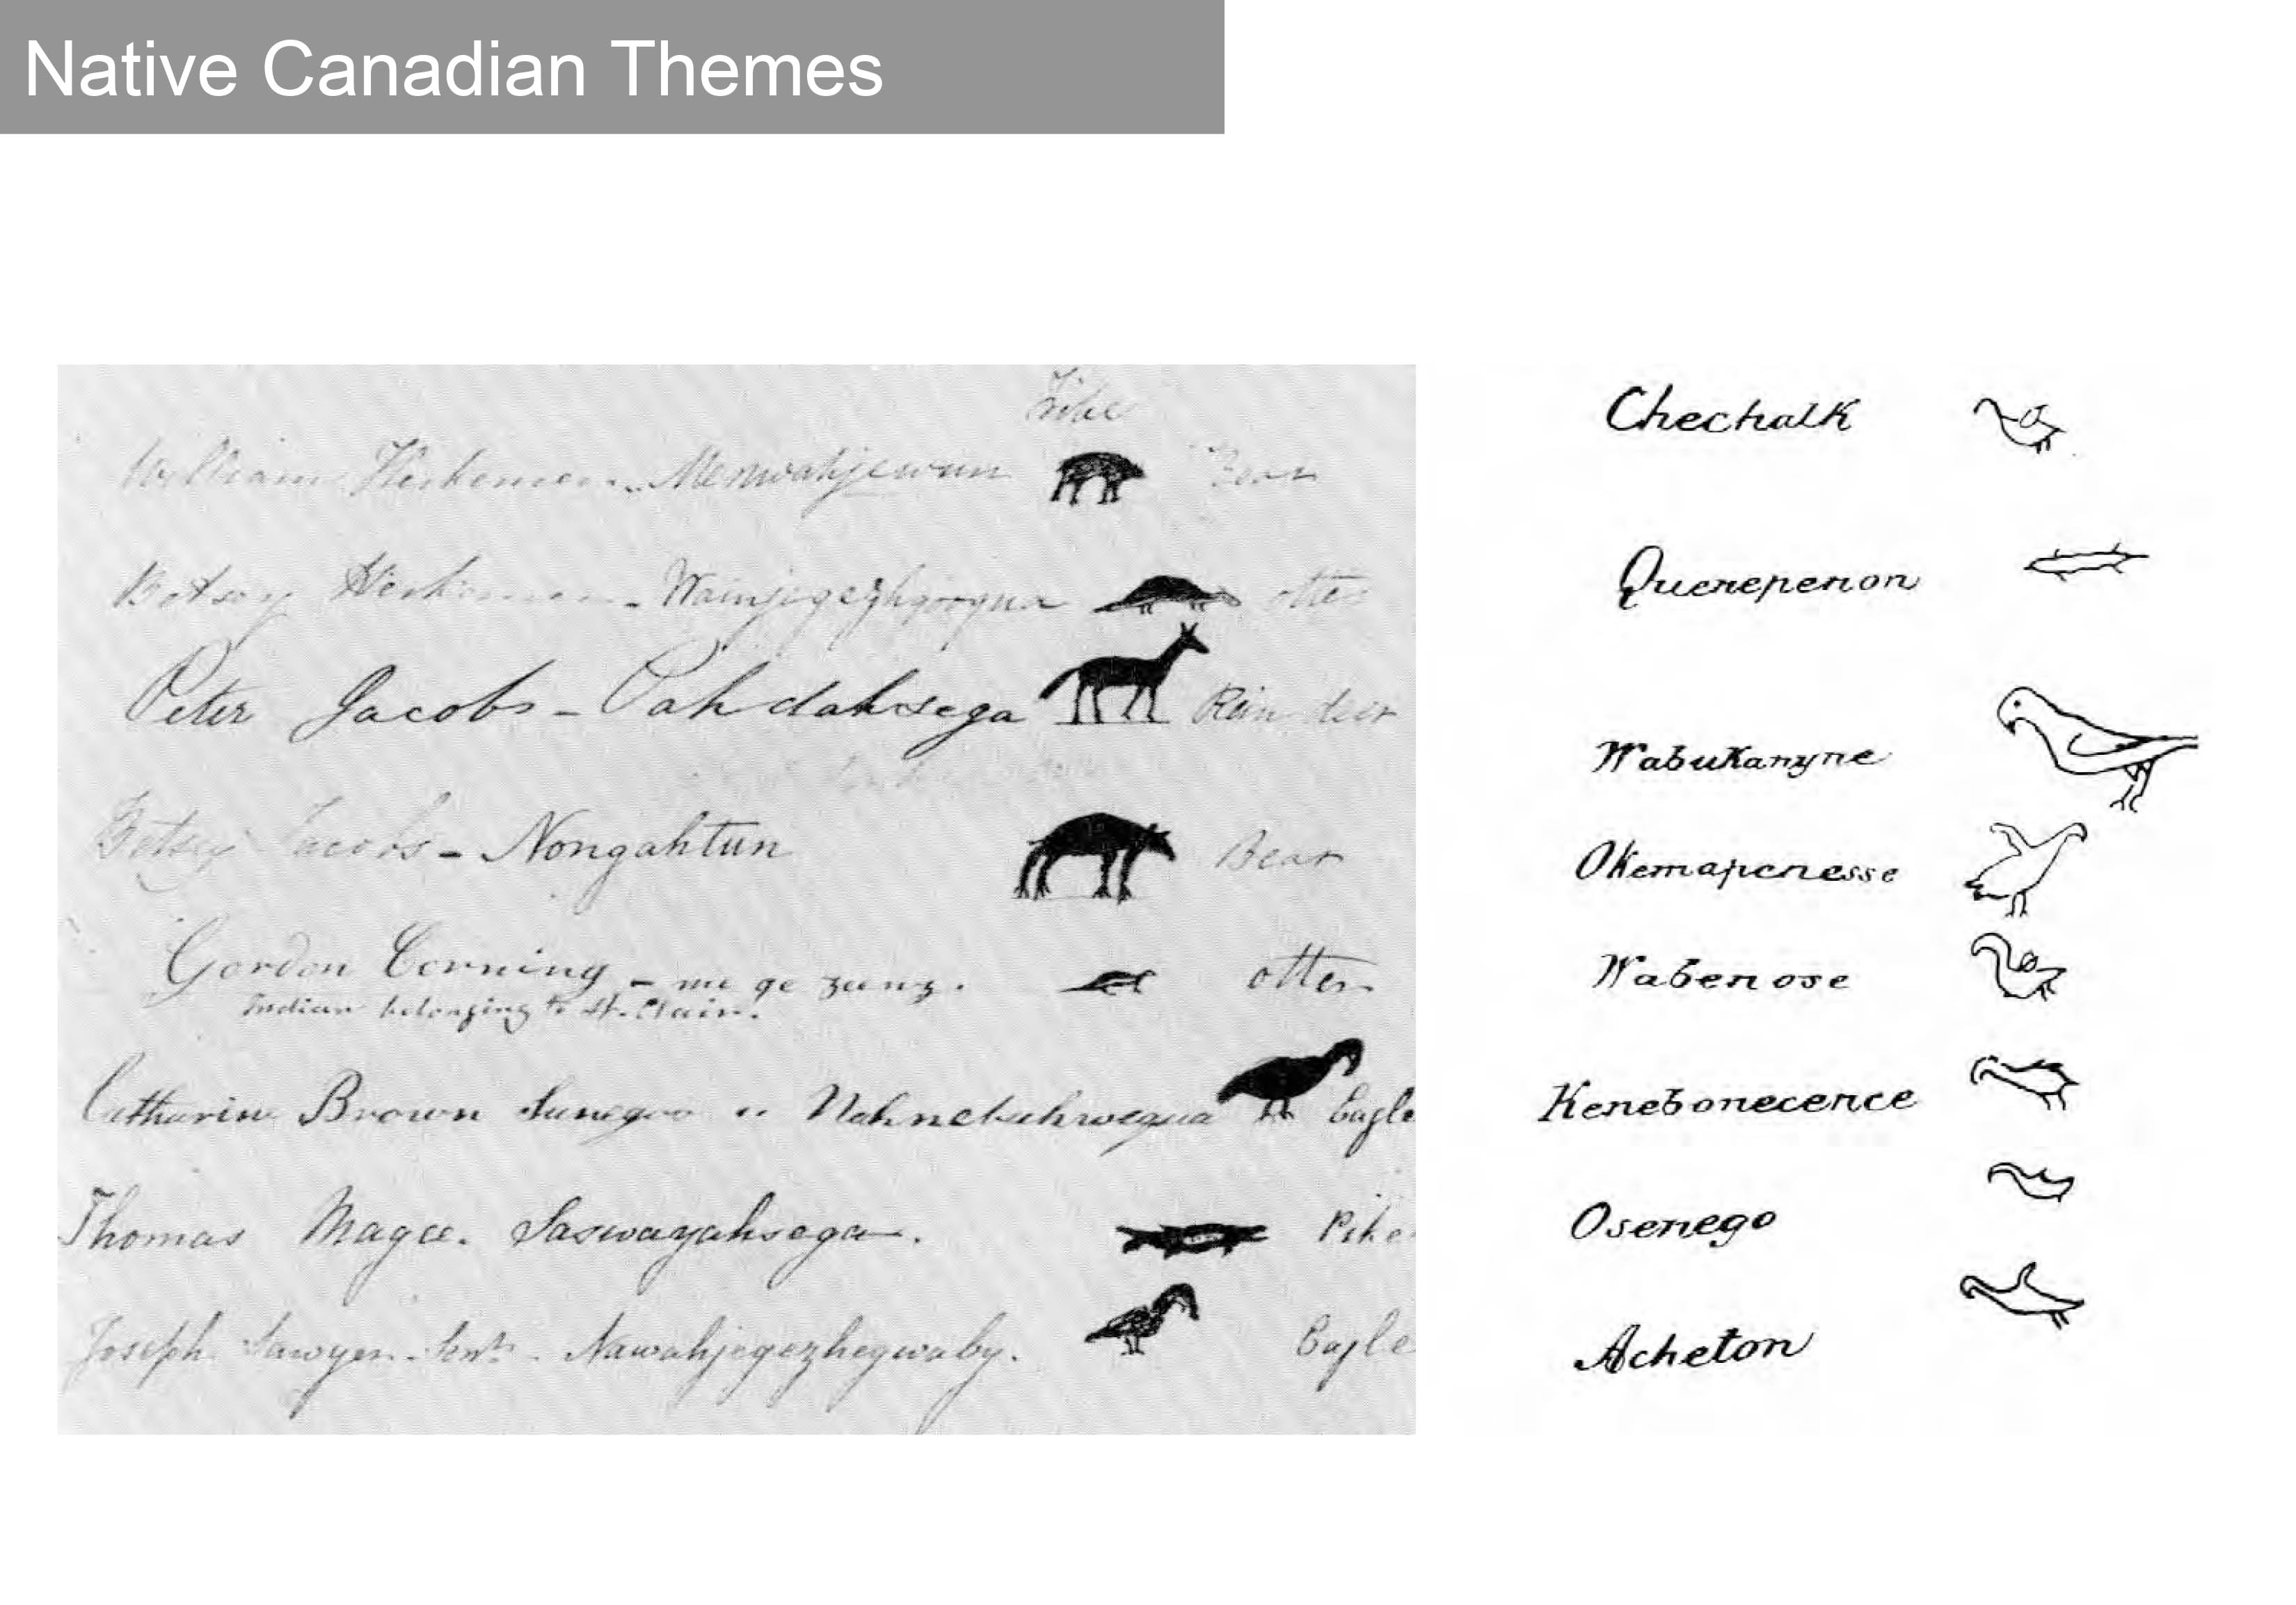 Native Canadian Themes
Tribe
William Herkemer - Menwahjewun Bear
Betsey Herkemer - Wainjegezhgoqua otter
Peter Jacobs - Pahdahsega Rein deer
Betsey Jacobs - Nongahtun Bear
Gordon Corning - me ge zunz. otter
Indian belonging to St. Clair.
Catharine Brown Sunegoo Eagle
Thomas Magee. Saswayahsega. Pike
Joseph Sawyer Nawahjegezhegwaby. Eagle
Chechalk
Querepenon
Wabukanyne
Okemapenesse
Wabenose
Kenebonecence
Osenego
Acheton